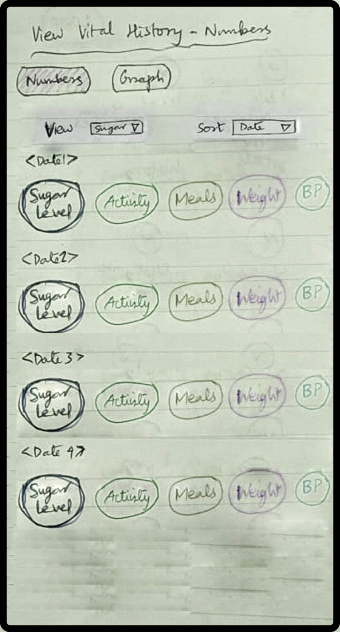 View Vital History - Numbers
Numbers Graph
View Sugar Sort Date
<Date1>
Sugar Level Activity Meals Weight BP
<Date2>
Sugar Level Activity Meals Weight BP
<Date 3>
Sugar Level Activity Meals Weight BP
<Date 4>
Sugar Level Activity Meals Weight BP